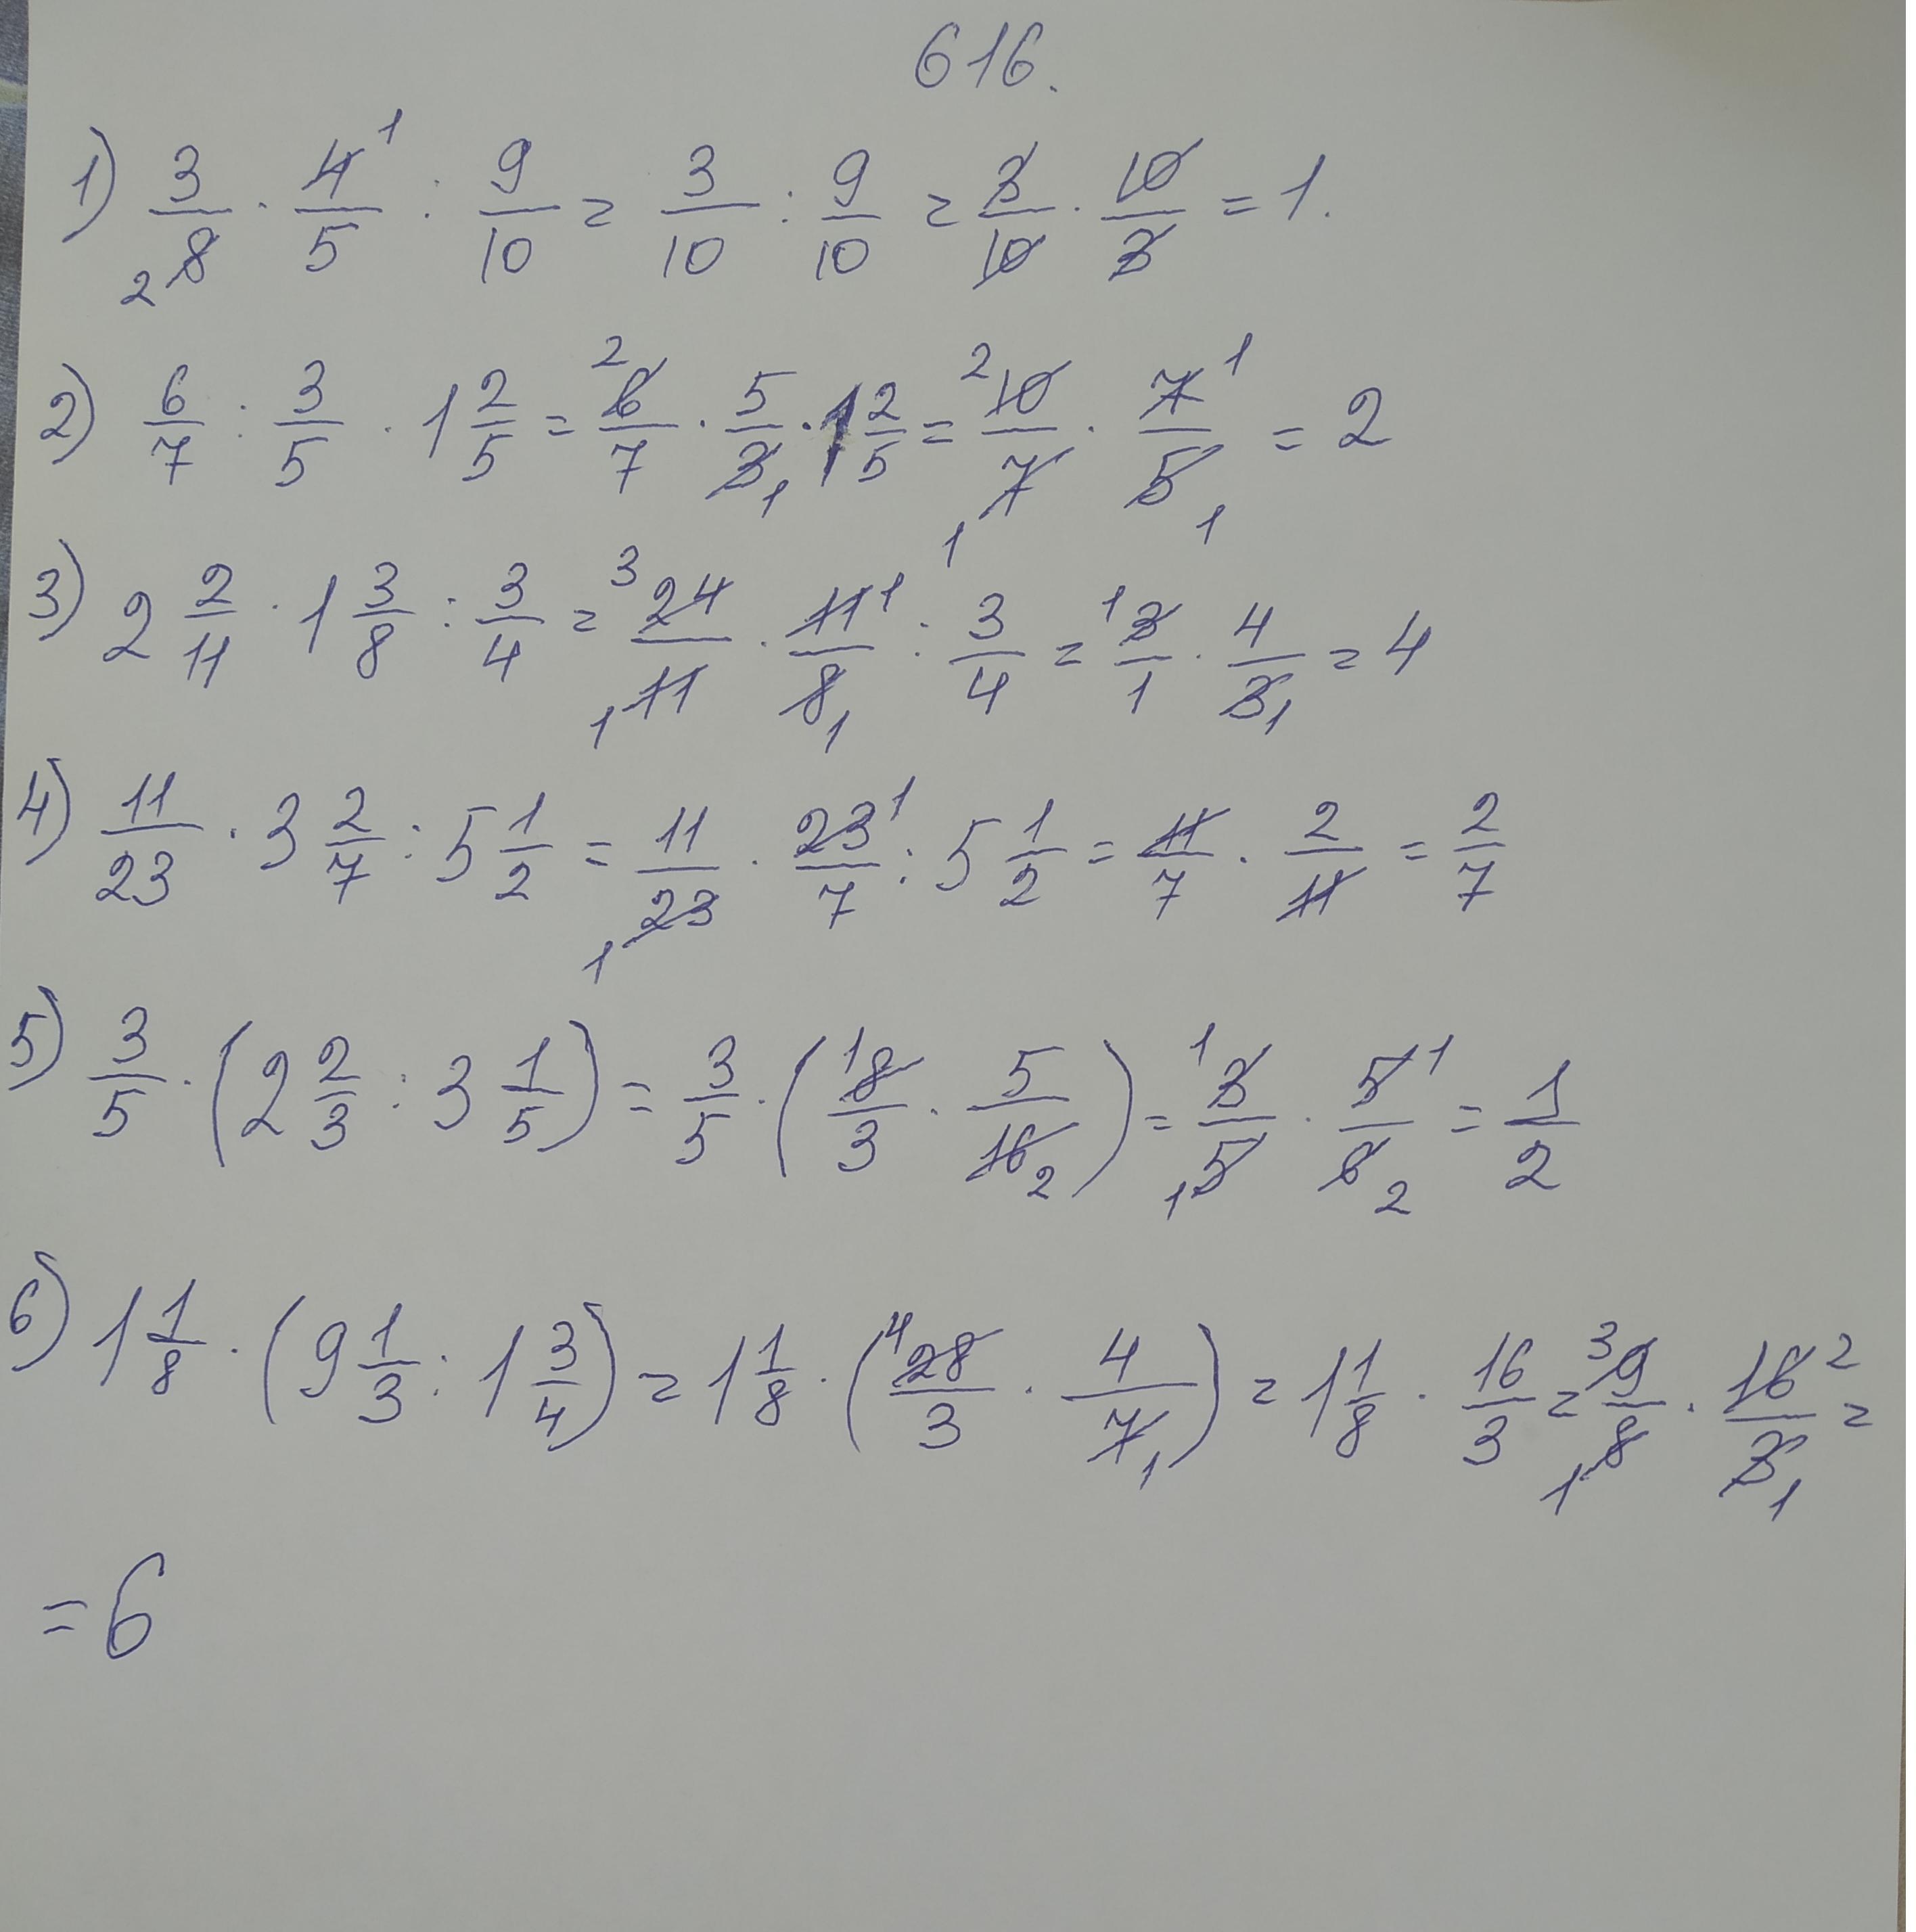 616.
1) 3/8 · 4/5 : 9/10 = 3/10 : 9/10 = 3/10 · 10/3 = 1.
2) 6/7 : 3/5 · 1 2/5 = 6/7 · 5/3 · 1 2/5 = 10/7 · 7/5 = 2
3) 2 2/11 · 1 3/8 : 3/4 = 24/11 · 11/8 : 3/4 = 3/1 · 4/3 = 4
4) 11/23 · 3 2/7 : 5 1/2 = 11/23 · 23/7 : 5 1/2 = 11/7 · 2/11 = 2/7
5) 3/5 · (2 2/3 : 3 1/5) = 3/5 · (8/3 · 5/16) = 3/5 · 5/6 = 1/2
6) 1 1/8 · (9 1/3 : 1 3/4) = 1 1/8 · (28/3 · 4/7) = 1 1/8 · 16/3 = 9/8 · 16/3 =
= 6